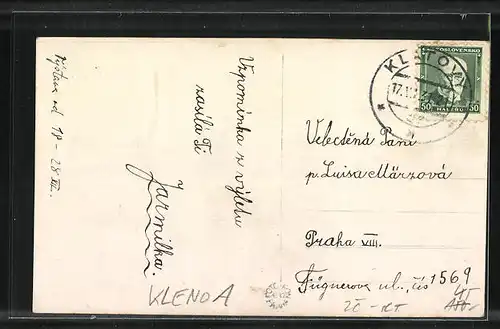 Výstava od 18 - 28 VII.
Vzpomínku z výletu
zasílá Ti
Jarmilka.
KLENOVÁ
17.VII.
ČESKOSLOVENSKO
50 HALÉŘŮ 50
Velectěná Paní
p. Luisa Märzová
Praha VIII.
Fügnerova ul., čís 1569
KLENOA